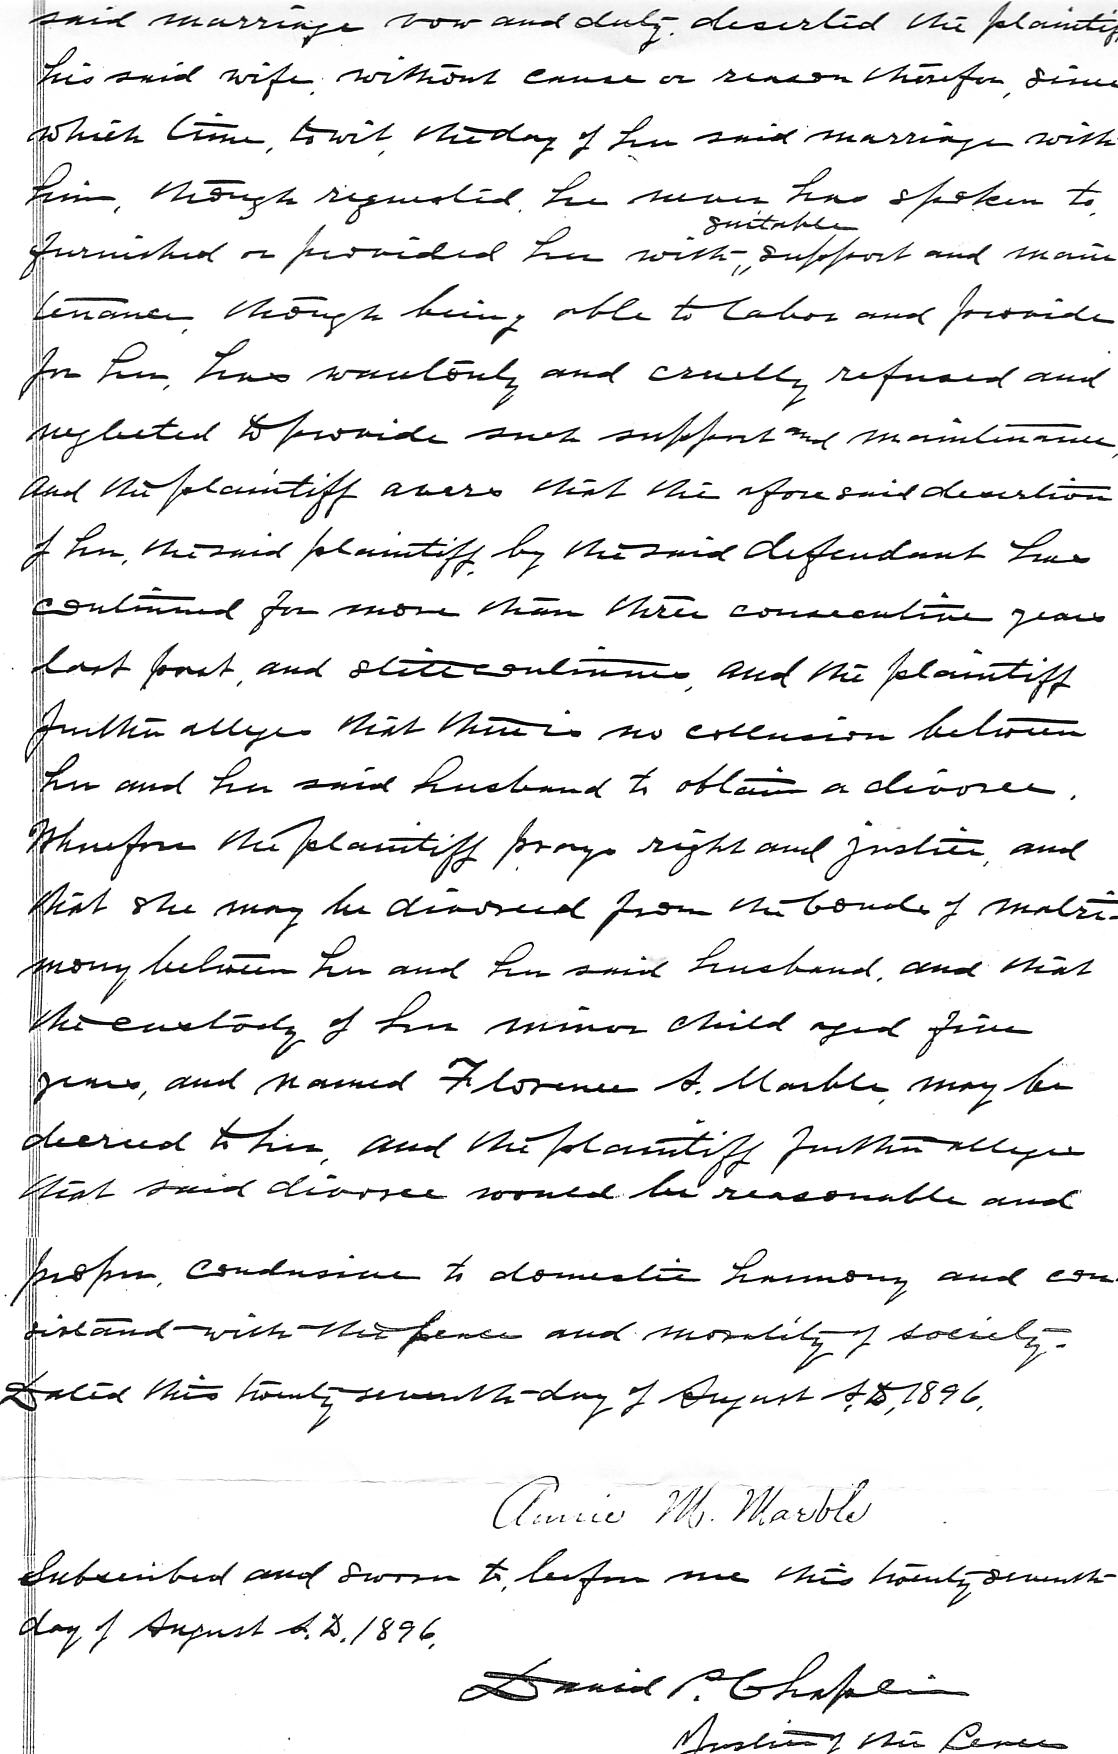 said marriage vow and duty, deserted the plaintiff
his said wife, without cause or reason therefor, since
which time, to wit, the day of her said marriage with
him, though requested, he never has spoken to,
suitable
furnished or provided her with support and main
tenance, though being able to labor and provide
for her, has wantonly and cruelly refused and
neglected to provide such support and maintenance,
and the plaintiff avers that the aforesaid desertion
of her, the said plaintiff, by the said defendant has
continued for more than three consecutive years
last past, and still continues, and the plaintiff
further alleges that there is no collusion between
her and her said husband to obtain a divorce.
Wherefore the plaintiff prays right and justice, and
that she may be divorced from the bonds of matri-
mony between her and her said husband, and that
the custody of her minor child aged five
years, and named Florence A. Marble, may be
decreed to her, and the plaintiff further alleges
that said divorce would be reasonable and
proper, condusive to domestic harmony and con-
sistand with the peace and morality of society.
Dated this twenty seventh day of August A.D. 1896.
Annie M. Marble
Subscribed and sworn to, before me this twenty seventh
day of August A.D. 1896.
David P. Chaplin
Justice of the Peace